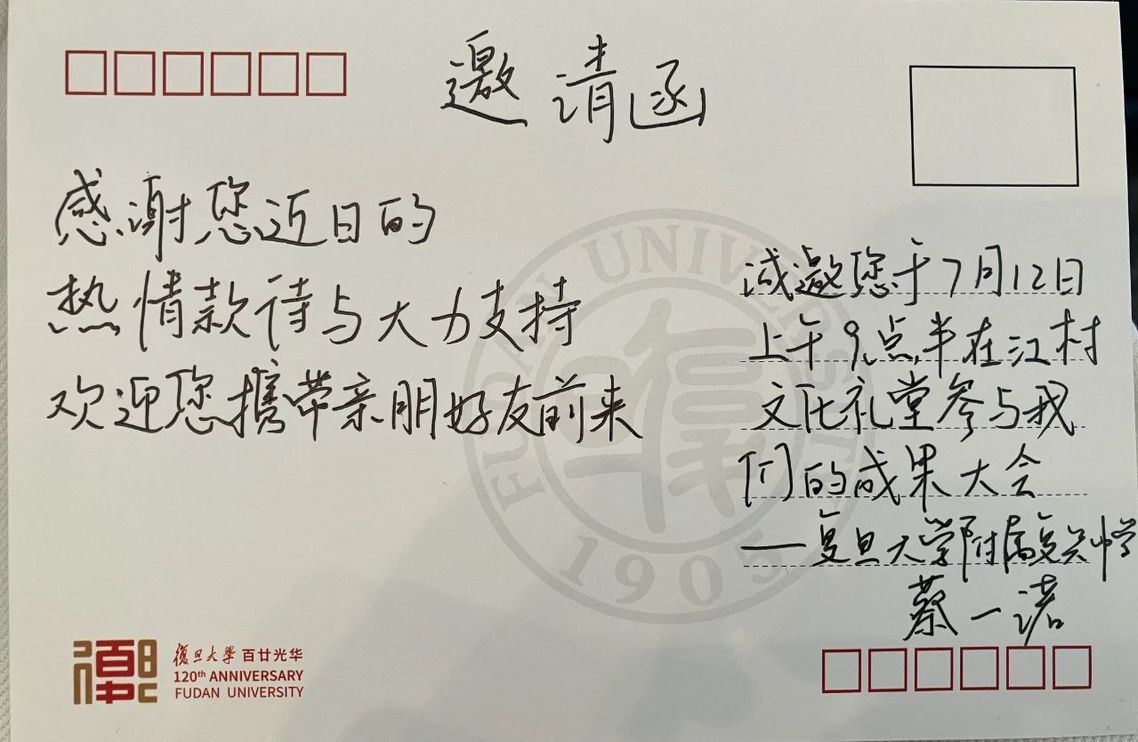 邀请函
感谢您近日的
热情款待与大力支持
欢迎您携带亲朋好友前来
诚邀您于7月12日
上午9点半在江村
文化礼堂参与我
们的成果大会
——复旦大学附属复兴中学
蔡一诺
FUDAN UNIVERSITY
1905
復旦大學 百廿光华
120th ANNIVERSARY
FUDAN UNIVERSITY